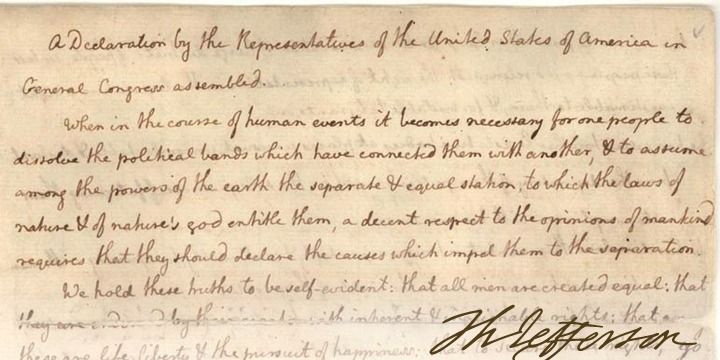 A Declaration by the Representatives of the United States of America in
General Congress assembled.
When in the course of human events it becomes necessary for one people to
dissolve the political bands which have connected them with another, & to assume
among the powers of the earth the separate & equal station, to which the laws of
nature & of nature's god entitle them, a decent respect to the opinions of mankind
requires that they should declare the causes which impel them to the separation.
We hold these truths to be self-evident: that all men are created equal: that
they are by their with inherent & rights: that
these are life, liberty & the pursuit of happiness: that to
Th Jefferson